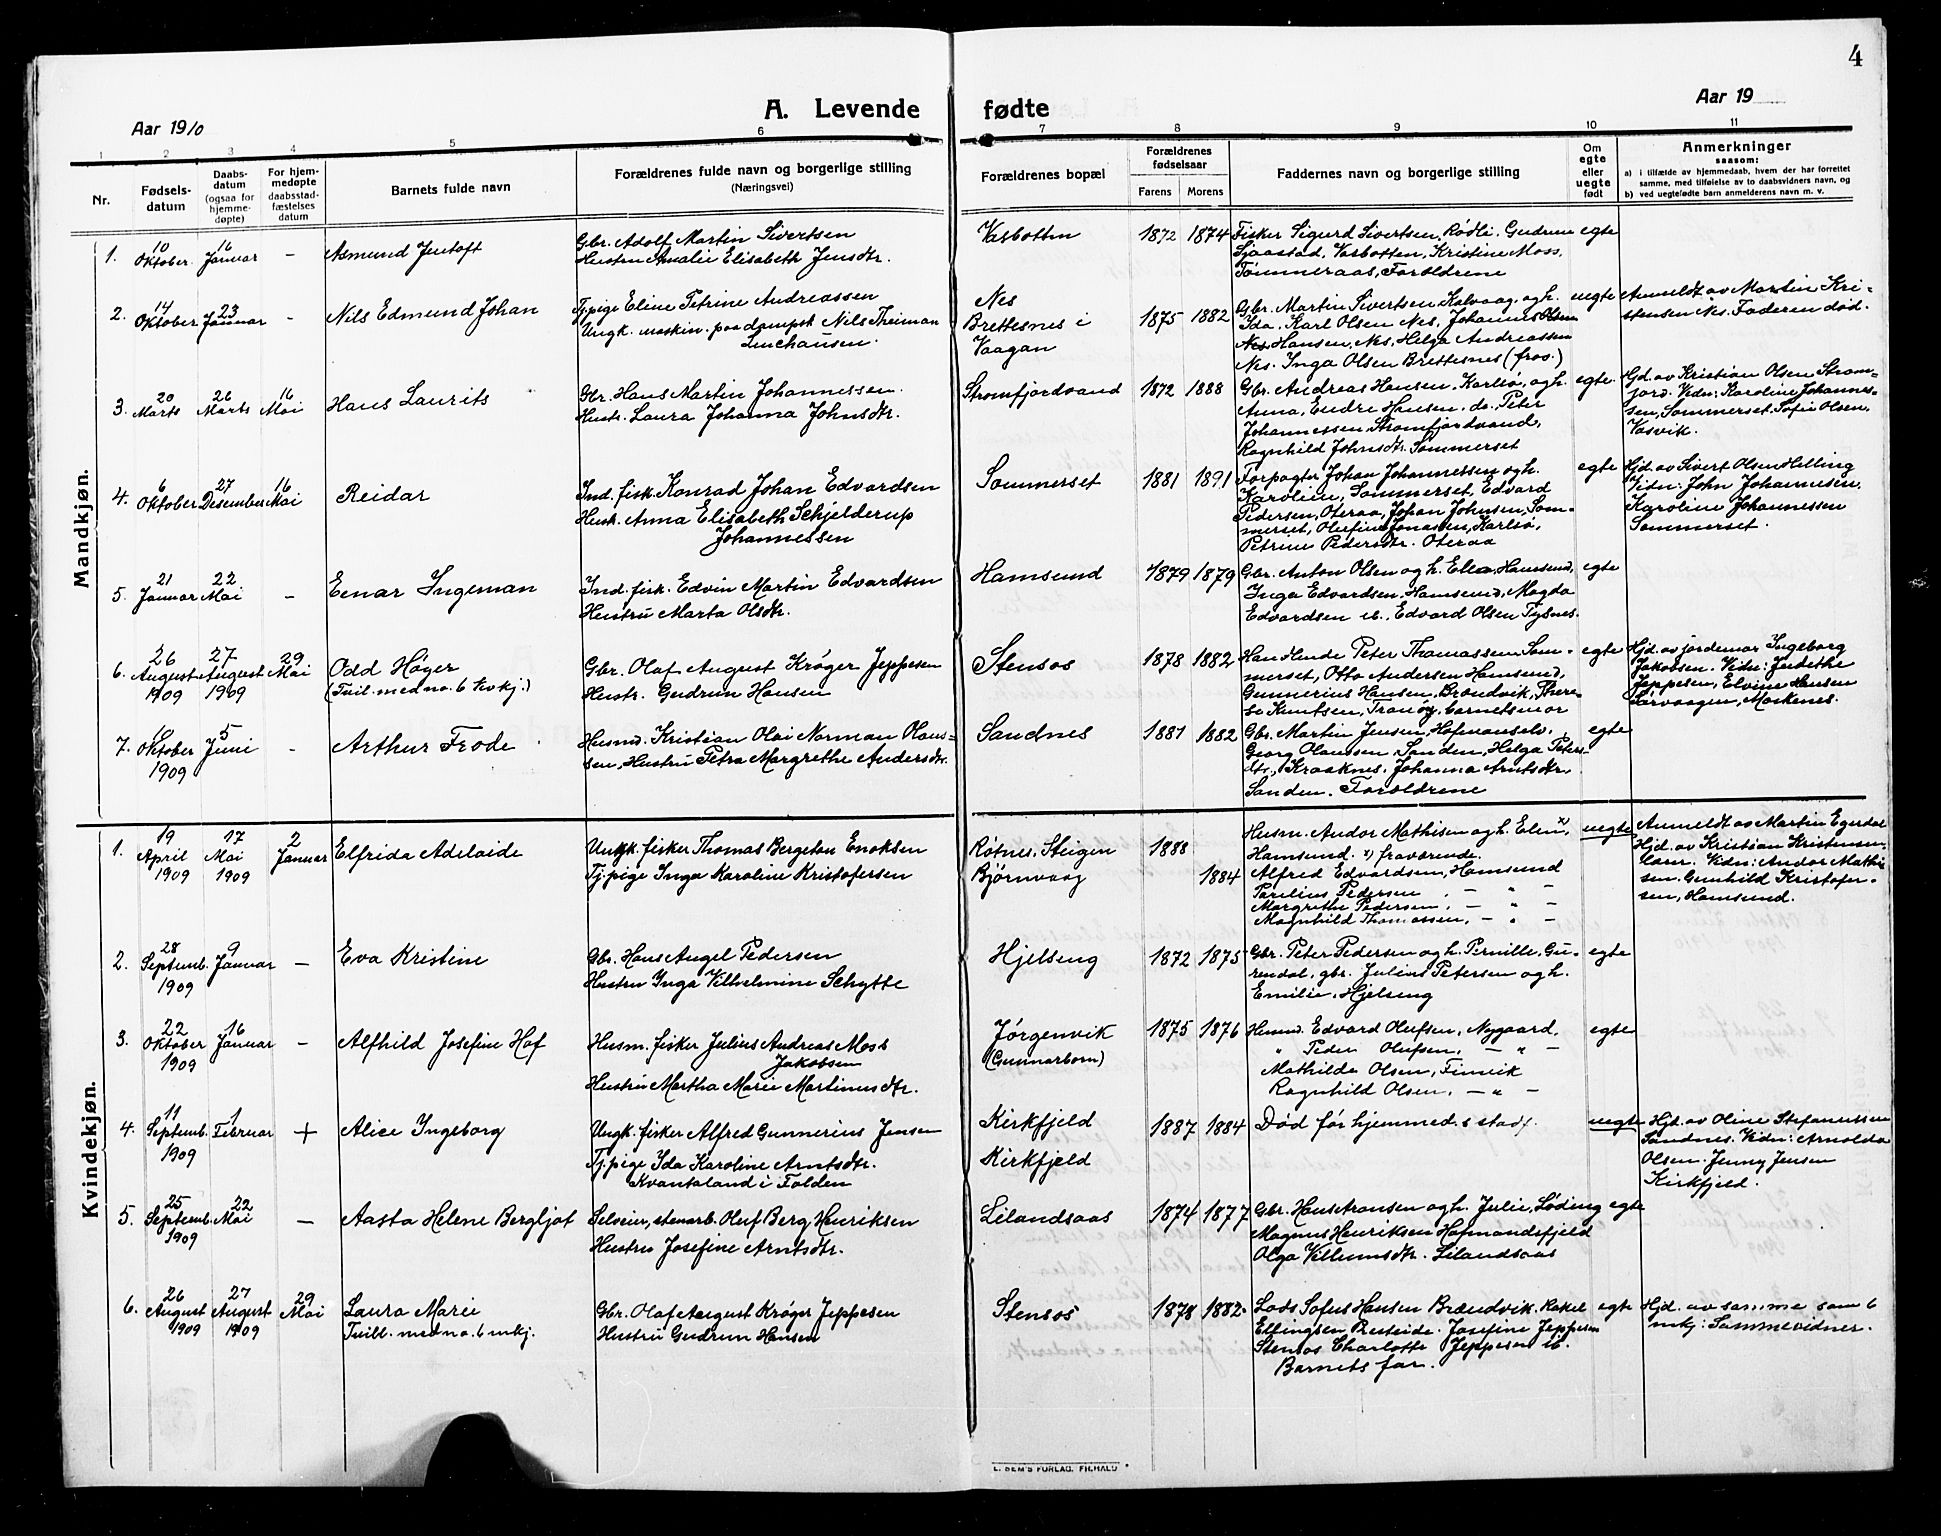 4
A. Levende fødte
Aar 1910
Aar 19
1 2 3 4 5 6 7 8 9 10 11
Nr.
Fødsels-
datum
Daabs-
datum
(ogsaa for
hjemme-
døpte)
For hjem-
medøpte
daabsstad-
fæstelses
datum
Barnets fulde navn
Forældrenes fulde navn og borgerlige stilling
(Næringsvei)
Forældrenes bopæl
Forældrenes
fødselsaar
Farens Morens
Faddernes navn og borgerlige stilling
Om
egte
eller
uegte
født
Anmerkninger
saasom:
a) i tilfælde av hjemmedaab, hvem der har forrettet
samme, med tilføielse av to daabsvidners navn, og
b) ved uegtefødte barn anmelderens navn m. v.
Mandkjøn.
1. 10 Oktober 16 Januar - Asmund Jentoft
Gbr. Adolf Martin Sivertsen
Hustru Amalie Elisabeth Jensdtr.
Vasbotten 1872 1874
Fisker Sigurd Sivertsen, Rødli, Gudrun
Sjaastad, Vasbotten, Kristine Moss,
Tømmeraas, Foroldrene
egte
2. 14 Oktober 23 Januar - Nils Edmund Johan
Tj.pige Eline Petrine Andreassen
Ungk. maskin. paa dampsk Nils Theiman
Nes
Brettesnes i
Vaagan
1875 1882
Gbr. Martin Sivertsen Kalvaag. og h.
Ida. Karl Olsen Nes. Johannes Olsen
Nes Hansen, Nes, Helga Andreassen
Nes. Inga Olsen Brettesnes (frav.)
uegte
Anmeldt av Martin Kri-
stensen Nes. Faderen død.
3. 20 Marts 26 Marts 16 Mai Hans Laurits
Gbr. Hans Martin Johannessen.
Hustr. Laura Johanna Johnsdtr.
Strømfjordvand 1872 1888
Gbr. Andreas Hansen. Karlsø, og h.
Anna, Endre Hansen. do. Peter
Johannessen Strømfjordvand,
Ragnhild Johnsdtr. Sommerset
egte.
Hjd. av Kristian Olsen Strøm-
jord. Vidn: Karoline Johannes-
sen, Sommerset, Sofie Olsen,
Vasvik.
4. 6 Oktober 27 Desember 16 Mai Reidar
Ind. fisk. Konrad Johan Edvardsen
Husk. Anna Elisabeth Schjelderup
Johannessen
Sommerset 1881 1891
Forpagter Johan Johannessen og h.
Karoline, Sommerset, Edvard
Pedersen, Oteraa, Johan Johnsen, Som-
merset, Olufine Jonassen, Karlsø,
Petrine Pedersdtr. Oteraa
egte
Hjd. av Sivert Olsen Helling
Vidn: John Johannesen,
Karoline Johannessen
Sommerset.
5. 21 Januar 22 Mai - Einar Ingeman
Ind. fisk. Edvin Martin Edvardsen
Hustru Marta Olsdtr.
Hamsund 1879 1879
Gbr. Anton Olsen og h. Elea, Hamsund,
Inga Edvardsen. Hamsund, Magda
Edvardsen ib., Edvard Olsen Tysnes.
egte
6. 26 August 1909 27 August 1909 29 Mai Odd Høyer
(Tvil. med no. 6 kvkj.)
Gbr. Olaf August Krøger Jeppesen
Hustr. Gudrun Hansen
Stensos 1878 1882
Peter Thomassen Som-
merset, Otto Andersen Hamsund,
Gunnerius Hansen, Brændvik, There-
se Knutsen, Tranøy. barnetsmor
egte
Hjd. av jordemor Ingeborg
Jakobsen. Vidn: Judithe
Jeppesen, Elvine Hansen
Sørvaagen, Moskenes.
7. Oktober 1909 5 Juni - Arthur Frode
Husmd. Kristian Olai Norman Olaus-
sen, Hustru Petra Margrethe Andersdtr.
Sandnes 1881 1882
Gbr. Martin Jensen,
Georg Olaussen Sanden, Helga Peters-
dtr., Kraaknes. Johanna Arntsdtr,
Sanden. Foroldrene
egte
Kvindekjøn.
1. 19 April 1909 17 Mai 1909 2 Januar Elfrida Adelaide
Ungk. fisker Thomas Bergeton Enoksen
Tj.pige Inga Karoline Kristofersen
Røtnes, Steigen 1888
Bjørnvaag 1884
Husm. Andor Mathisen og h. Elen x),
Hamsund. x) fraværende.
Alfred Edvardsen, Hamsund
Parelius Pedersen, - " -
Margrethe Pedersen, - " -
Magnhild Thomassen, - " -
uegte
Anmeldt av Martin
Hjd. av Kristian Kristensen
Vidn: Andor Mathi-
sen. Gunhild Kristofer-
sen, Hamsund.
2. 28 Septemb. 1909 9 Januar - Eva Kristine
Gbr. Hans Angel Pedersen
Hustru Inga Vilhelmine Schytte
Hjelseng 1872 1875
Gbr. Peter Pedersen og h. Pernille, Gu-
rendal, gbr. Julius Petersen og h.
Emilie, Hjelseng
egte
3. 22 Oktober 1909 16 Januar - Alfhild Josefine Hof
Husm. fisker Julius Andreas Moss
Jakobsen
Hustru Martha Marie Martinusdtr.
Jørgenvik
(Gunnarbom)
1875 1876
Husmd. Edvard Olufsen, Nygaard.
" Peder Olufsen, - " -
Mathilde Olsen, Finvik
Ragnhild Olsen, - " -
egte
4. 11 Septemb. 1909 1 Februar + Alice Ingeborg
Ungk. fisker Alfred Gunnerius Jensen
Tj.pige Ida Karoline Arntsdtr.
Kvantoland i Folden
Kirkfjeld
Kirkfjeld
1887 1884
Død før hjemmed. s stadf.
uegte
Hjd. av Oline Stefanussen
Sandnes. Vidn: Arnolda
Olsen. Jenny Jensen
Kirkfjeld.
5. 25 Septemb. 1909 22 Mai - Aasta Helene Bergljot
Selveier, stenarb. Oluf Berg Henriksen
Hustru Josefine Arntsdtr.
Lilandsaas 1874 1877
Gbr. Hans og h. Julie, Løding
Magnus Henriksen Hafmandsfjeld
Olga Villumsdtr. Lilandsaas
egte
6. 26 August 1909 27 August 1909 29 Mai Laura Marie
Tvill. med no. 6 mkj.
Gbr. Olaf August Krøger Jeppesen
Hustru Gudrun Hansen
Stensos 1878 1882
Lods Sofus Hansen Brændvik. Rakel
Elfingsen Presteide. Josefine Jeppesen
Stensos Charlotte Jeppesen ib.
Barnets far.
egte
Hjd. av samme som 6
mkj: Samme vidner.
E. SEM'S FORLAG, FR.HALD